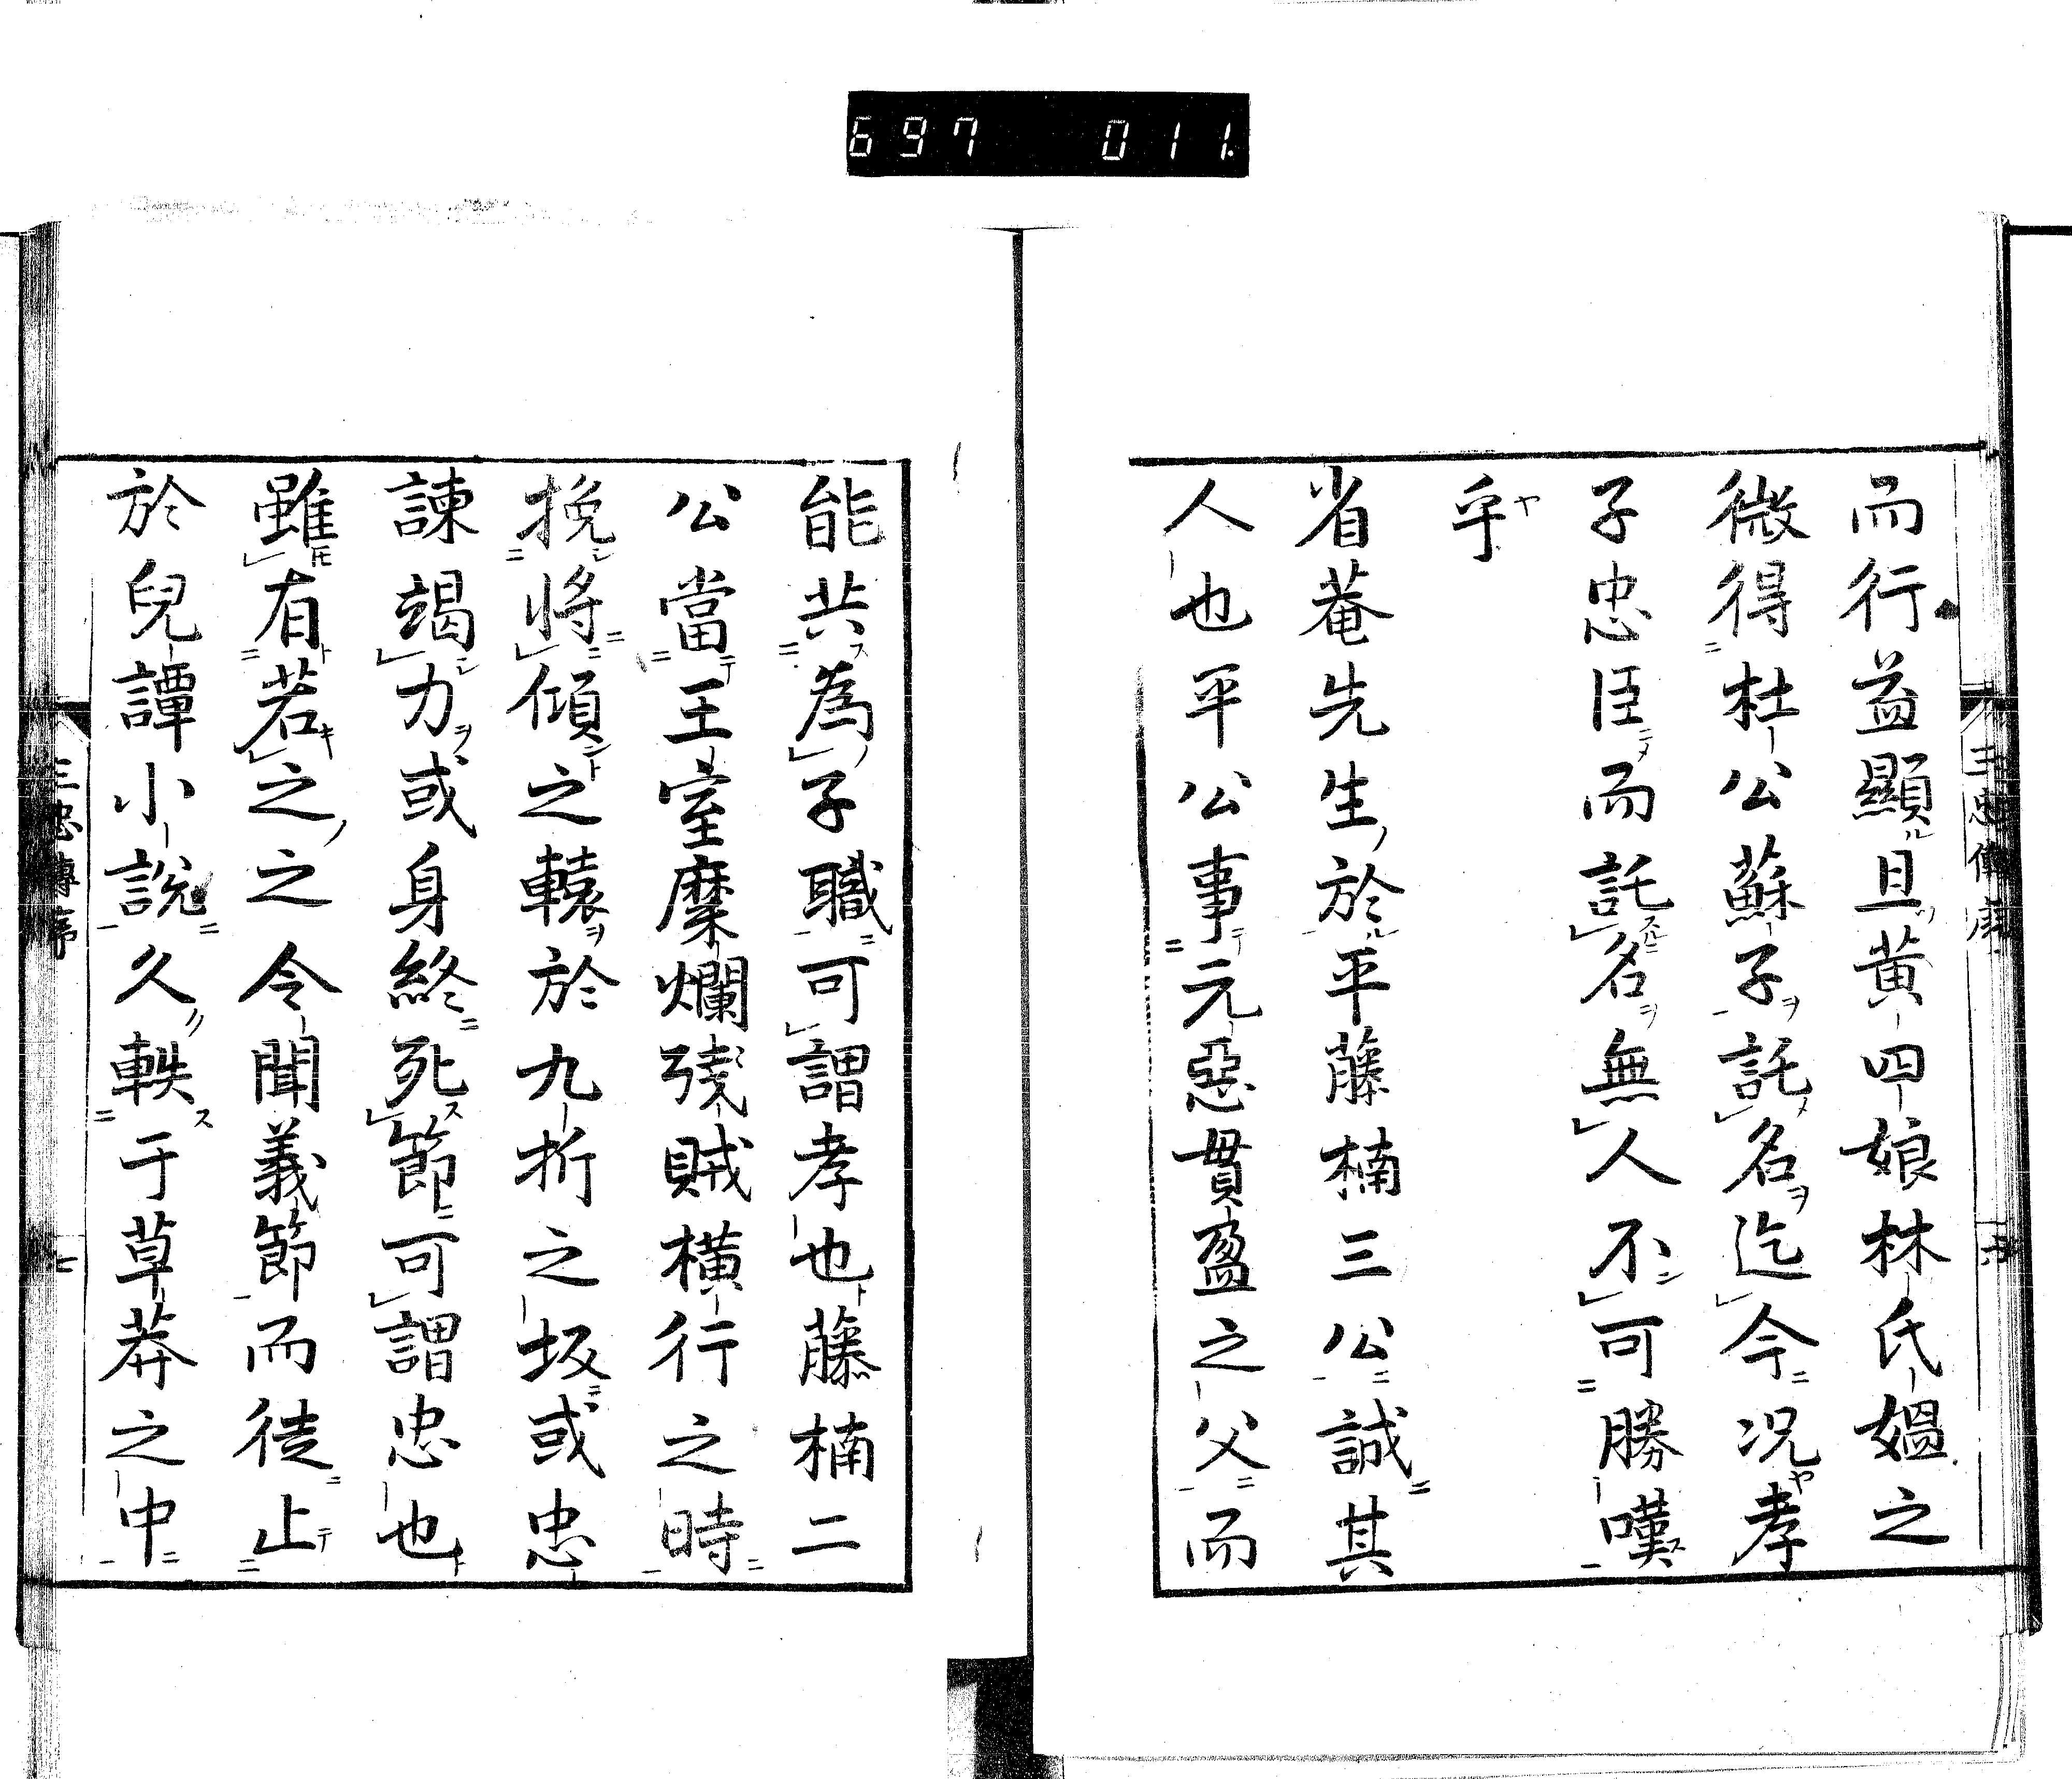 697 011
而行益顯且黄四娘林氏媼之
微得杜公蘇子託名迄今况孝
子忠臣而託名無人不可勝嘆
乎
省菴先生於平藤楠三公誠其
人也平公事元惡貫盈之父而
能共為子職可謂孝也藤楠二
公當王室糜爛残賊横行之時
挽將傾之轅於九折之坂或忠
諫竭力或身終死節可謂忠也
雖有若之之令聞義節而徒止
於兒譚小説久軼于草莽之中
三忠傳序
七